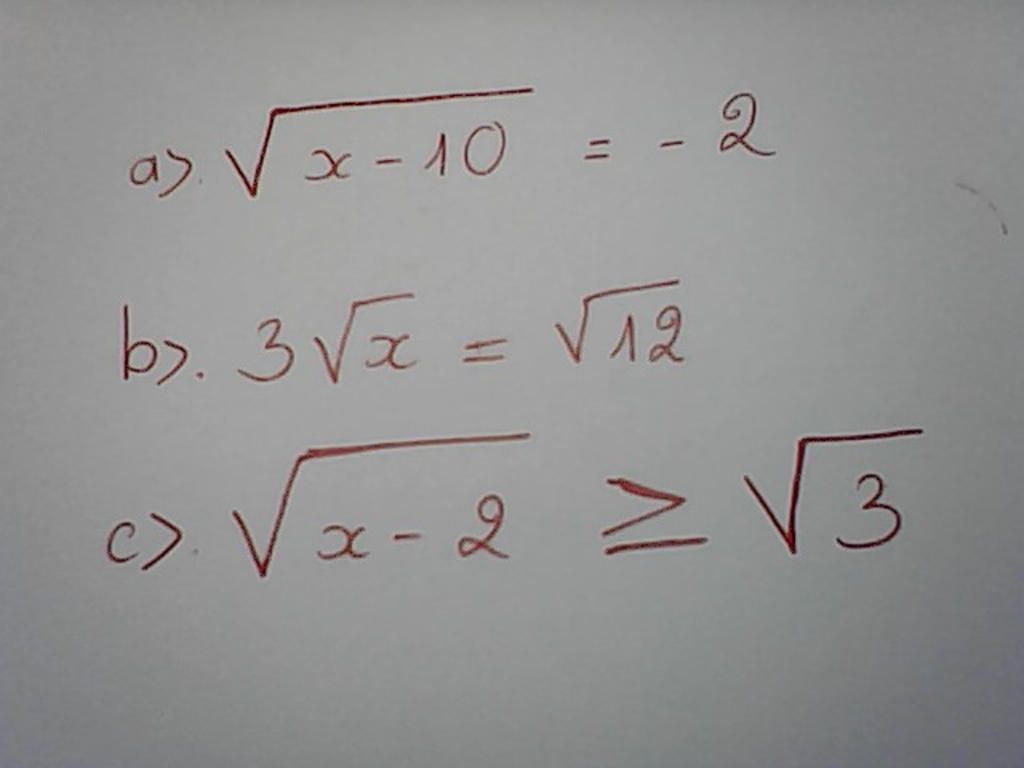 a>. √(x - 10) = - 2
b>. 3√x = √12
c>. √(x - 2) ≥ √3